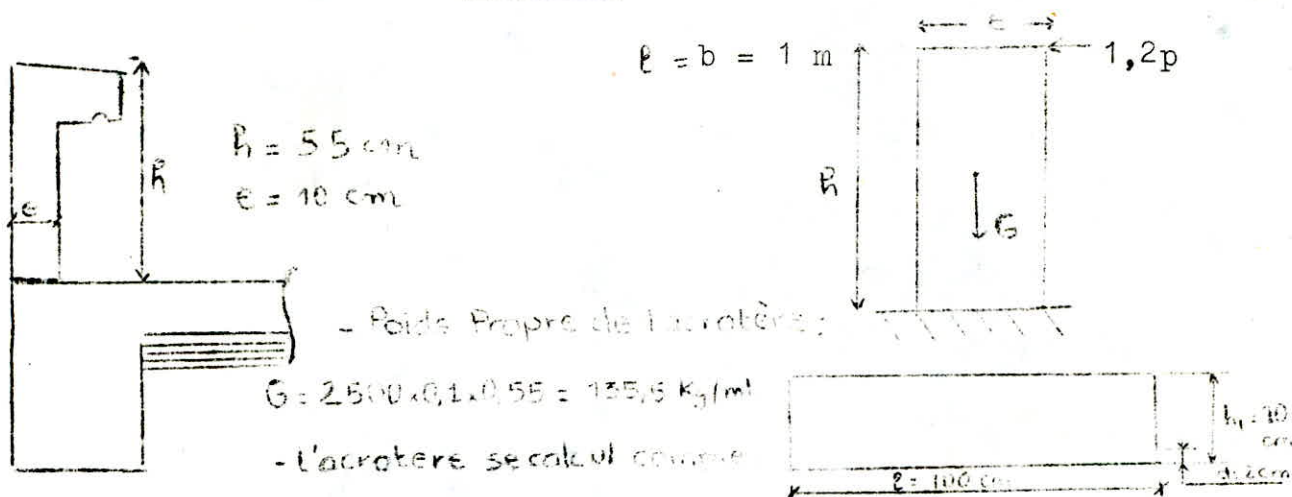 e
ℓ = b = 1 m
1,2p
h = 55 cm
e = 10 cm
h
e
h
G
- Poids Propre de l'acrotère :
G = 2500x0,1x0,55 = 135,5 Kg/ml
- L'acrotere se calcul comme
h₁ = 10 cm
d = 2cm
ℓ = 100 cm